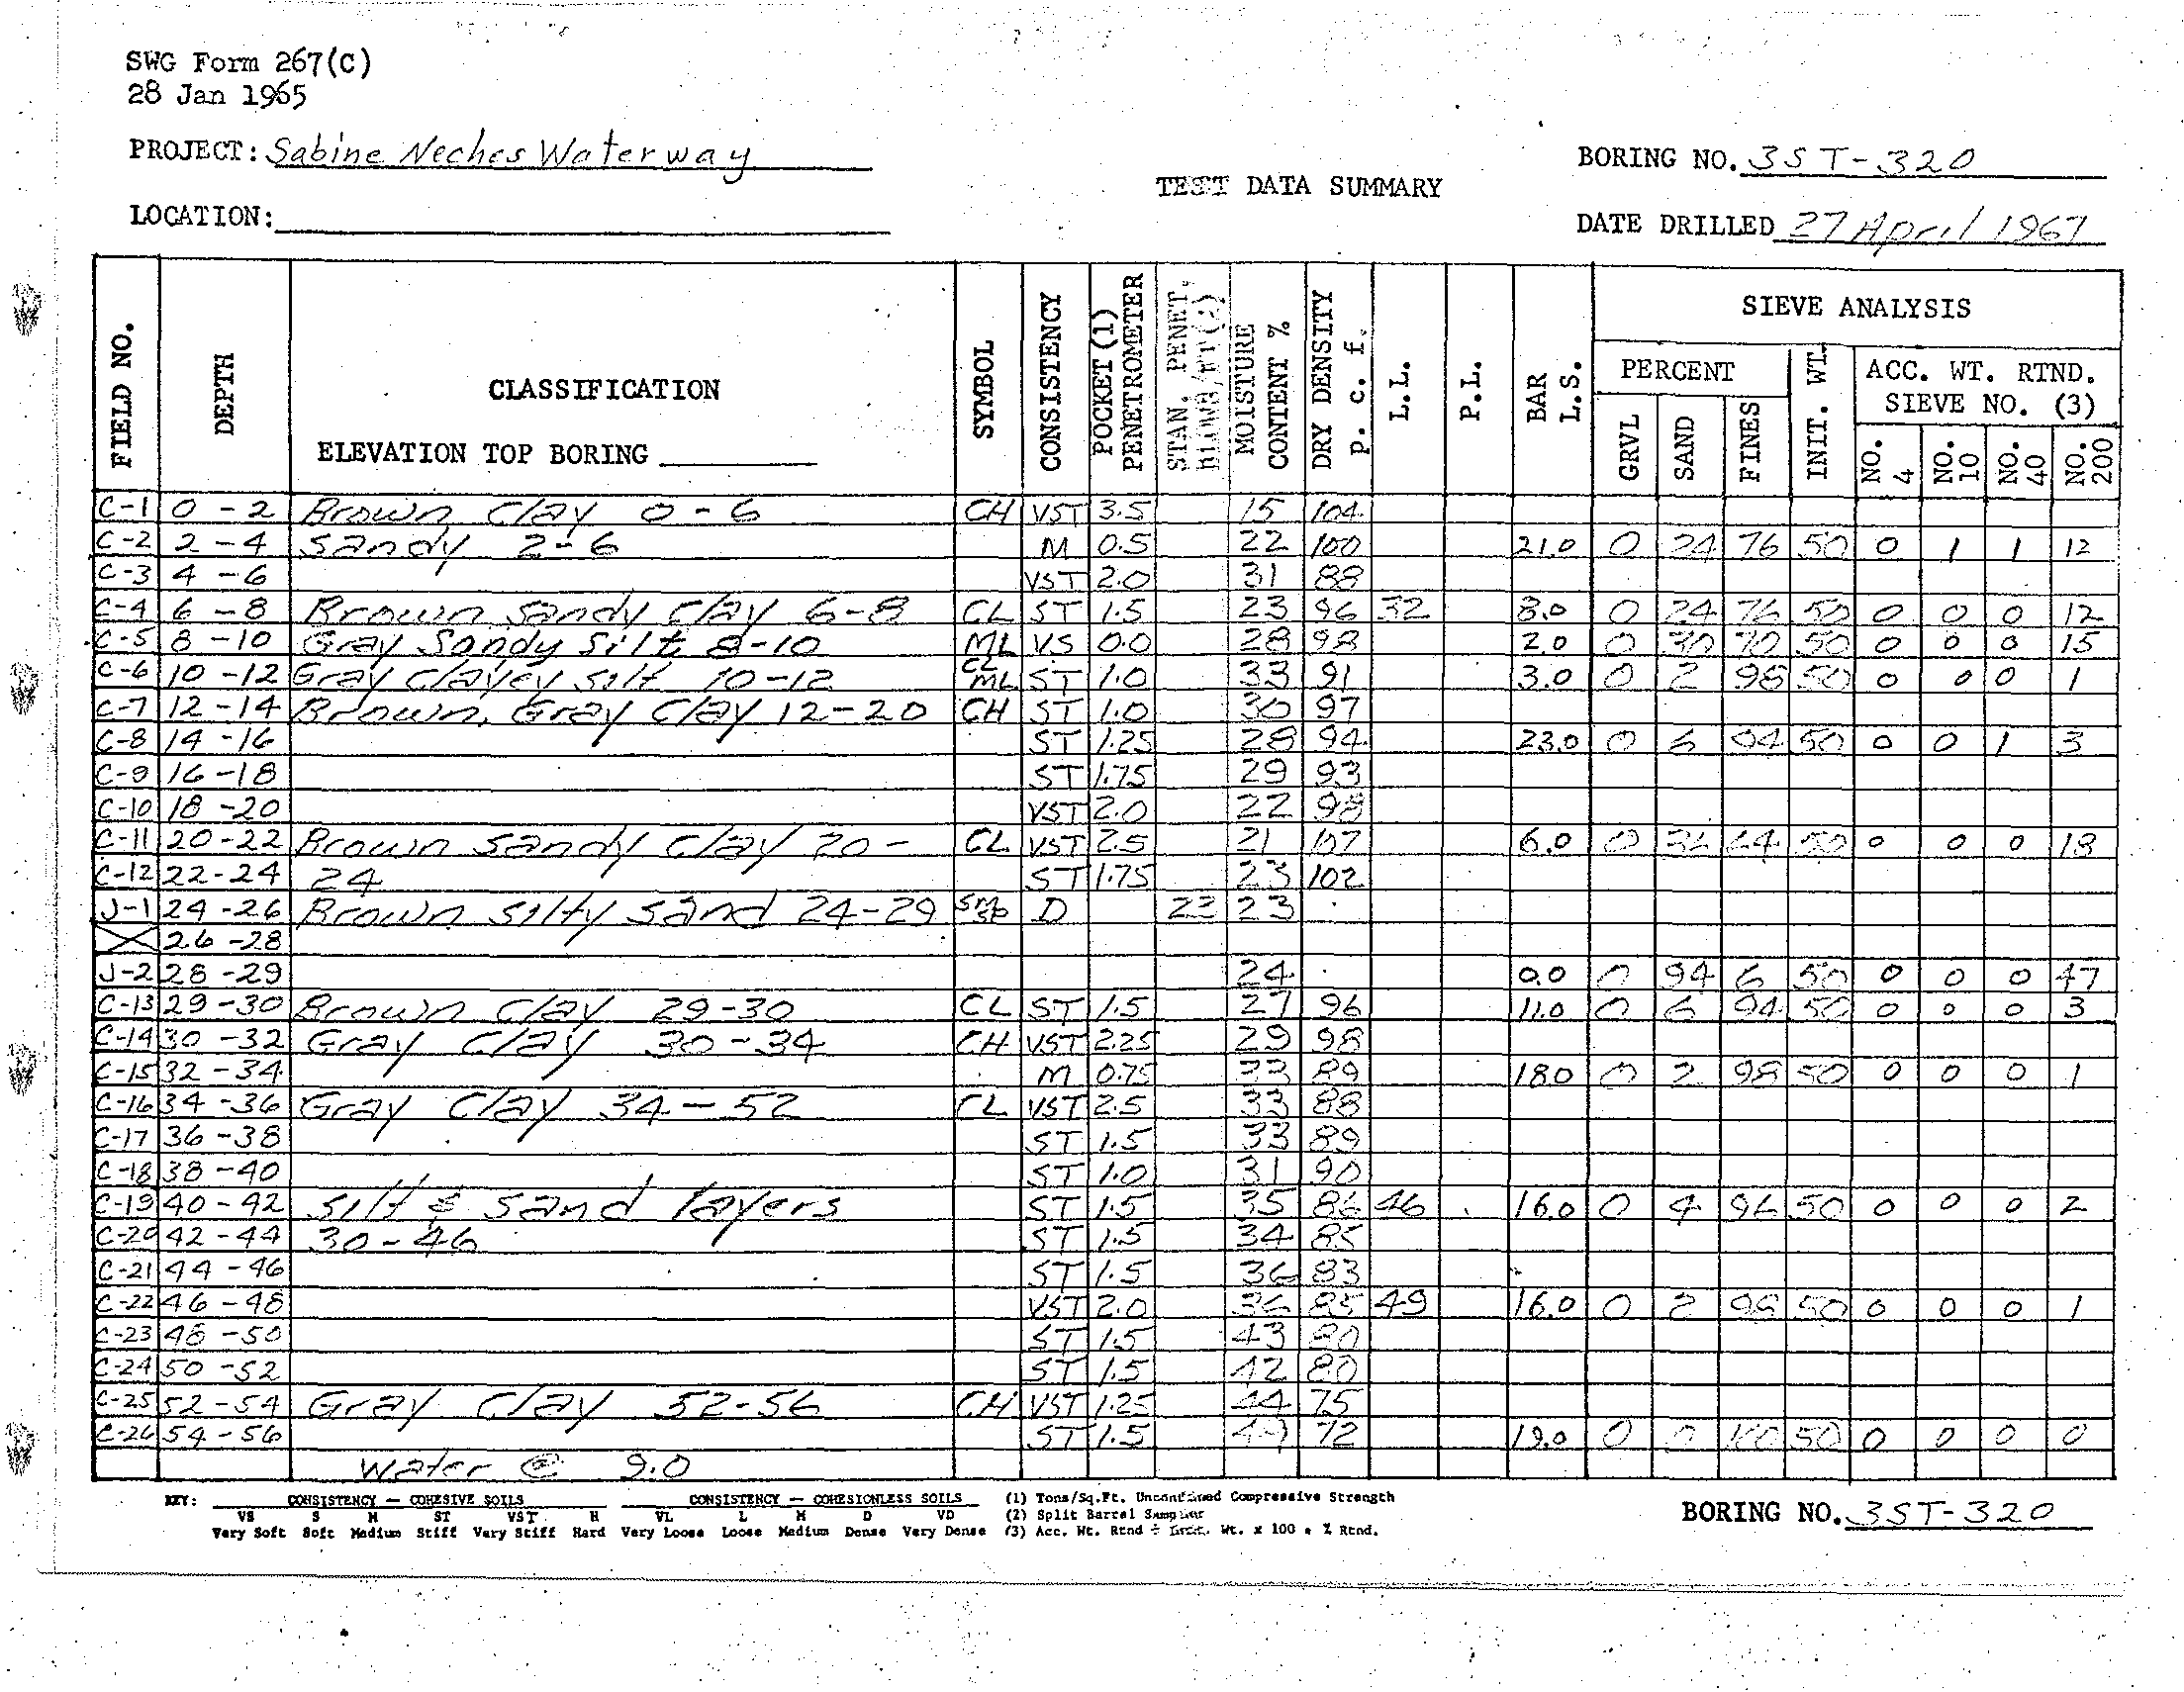 SWG Form 267(C)
28 Jan 1965
PROJECT: Sabine Neches Waterway
BORING NO. 3ST-320
TEST DATA SUMMARY
LOCATION:
DATE DRILLED 27 April 1967
FIELD NO. DEPTH CLASSIFICATION SYMBOL CONSISTENCY POCKET (1) PENETROMETER STAN. PENET. BLOWS/FT (2) MOISTURE CONTENT % DRY DENSITY p. c. f. L.L. P.L. BAR L.S. SIEVE ANALYSIS
PERCENT INIT. WT. ACC. WT. RTND. SIEVE NO. (3)
ELEVATION TOP BORING
GRVL SAND FINES NO. 4 NO. 10 NO. 40 NO. 200
C-1 0 - 2 Brown Clay 0 - 6 CH VST 3.5 15 104
C-2 2 - 4 Sandy 2-6 M 0.5 22 100 21.0 0 24 76 50 0 1 1 12
C-3 4 - 6 VST 2.0 31 88
C-4 6 - 8 Brown Sandy Clay 6-8 CL ST 1.5 23 96 32 8.0 0 24 76 50 0 0 0 12
C-5 8 - 10 Gray Sandy Silt 8-10 ML VS 0.0 28 98 2.0 0 30 70 50 0 0 0 15
C-6 10 - 12 Gray Clayey Silt 10-12 CL ML ST 1.0 33 91 3.0 0 2 98 50 0 0 0 1
C-7 12 - 14 Brown, Gray Clay 12-20 CH ST 1.0 30 97
C-8 14 - 16 ST 1.25 28 94 23.0 0 6 94 50 0 0 1 3
C-9 16 - 18 ST 1.75 29 93
C-10 18 - 20 VST 2.0 22 98
C-11 20 - 22 Brown Sandy Clay 20 - CL VST 2.5 21 107 6.0 0 36 64 50 0 0 0 18
C-12 22 - 24 24 ST 1.75 23 102
J-1 24 - 26 Brown Silty Sand 24-29 SM SP D 22 23
26 - 28
J-2 28 - 29 24 0.0 0 94 6 50 0 0 0 47
C-13 29 - 30 Brown Clay 29-30 CL ST 1.5 27 96 11.0 0 6 94 50 0 0 0 3
C-14 30 - 32 Gray Clay 30-34 CH VST 2.25 29 98
C-15 32 - 34 M 0.75 33 89 18.0 0 2 98 50 0 0 0 1
C-16 34 - 36 Gray Clay 34 - 52 CL VST 2.5 33 88
C-17 36 - 38 ST 1.5 33 89
C-18 38 - 40 ST 1.0 31 90
C-19 40 - 42 Silt & Sand layers ST 1.5 35 86 46 16.0 0 4 96 50 0 0 0 2
C-20 42 - 44 30 - 46 ST 1.5 34 85
C-21 44 - 46 ST 1.5 36 83
C-22 46 - 48 VST 2.0 36 85 49 16.0 0 2 98 50 0 0 0 1
C-23 48 - 50 ST 1.5 43 80
C-24 50 - 52 ST 1.5 42 80
C-25 52 - 54 Gray Clay 52-56 CH VST 1.25 44 75
C-26 54 - 56 ST 1.5 72 19.0 0 0 100 50 0 0 0 0
Water @ 9.0
KEY: CONSISTENCY — COHESIVE SOILS CONSISTENCY — COHESIONLESS SOILS (1) Tons/Sq.Ft. Unconfined Compressive Strength
VS S M ST VST H VL L M D VD (2) Split Barrel Sampler
Very Soft Soft Medium Stiff Very Stiff Hard Very Loose Loose Medium Dense Very Dense (3) Acc. Wt. Rtnd ÷ Init. Wt. x 100 = % Rtnd.
BORING NO. 3ST-320